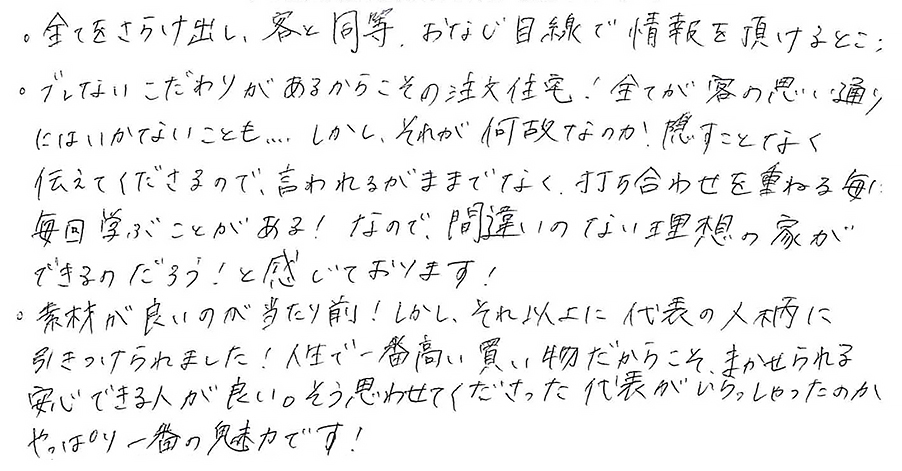 。全てをさらけ出し、客と同等、おなじ目線で情報を頂けるとこ
。ブレないこだわりがあるからこその注文住宅！全てが客の思い通り
にはいかないことも.... しかし、それが何故なのか！隠すことなく
伝えてくださるので、言われるがままでなく、打ち合わせを重ねる毎に
毎回学ぶことがある！なので、間違いのない理想の家が
できるのだろう！と感じております！
。素材が良いのが当たり前！しかし、それ以上に代表の人柄に
引きつけられました！人生で一番高い買い物だからこそ、まかせられる
安心できる人が良い。そう思わせてくださった代表がいらっしゃったのが
やっぱり一番の魅力です！